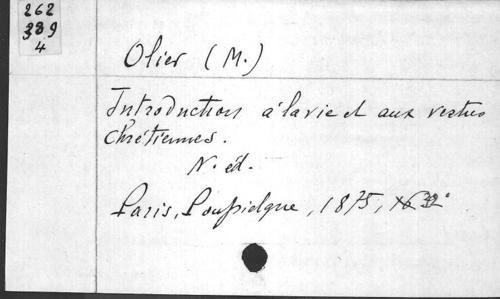 262
339
4
Olier (M.)
Introduction à la vie et aux vertus
Chrétiennes.
N. éd.
Paris, Poussielgue, 1875, 32°